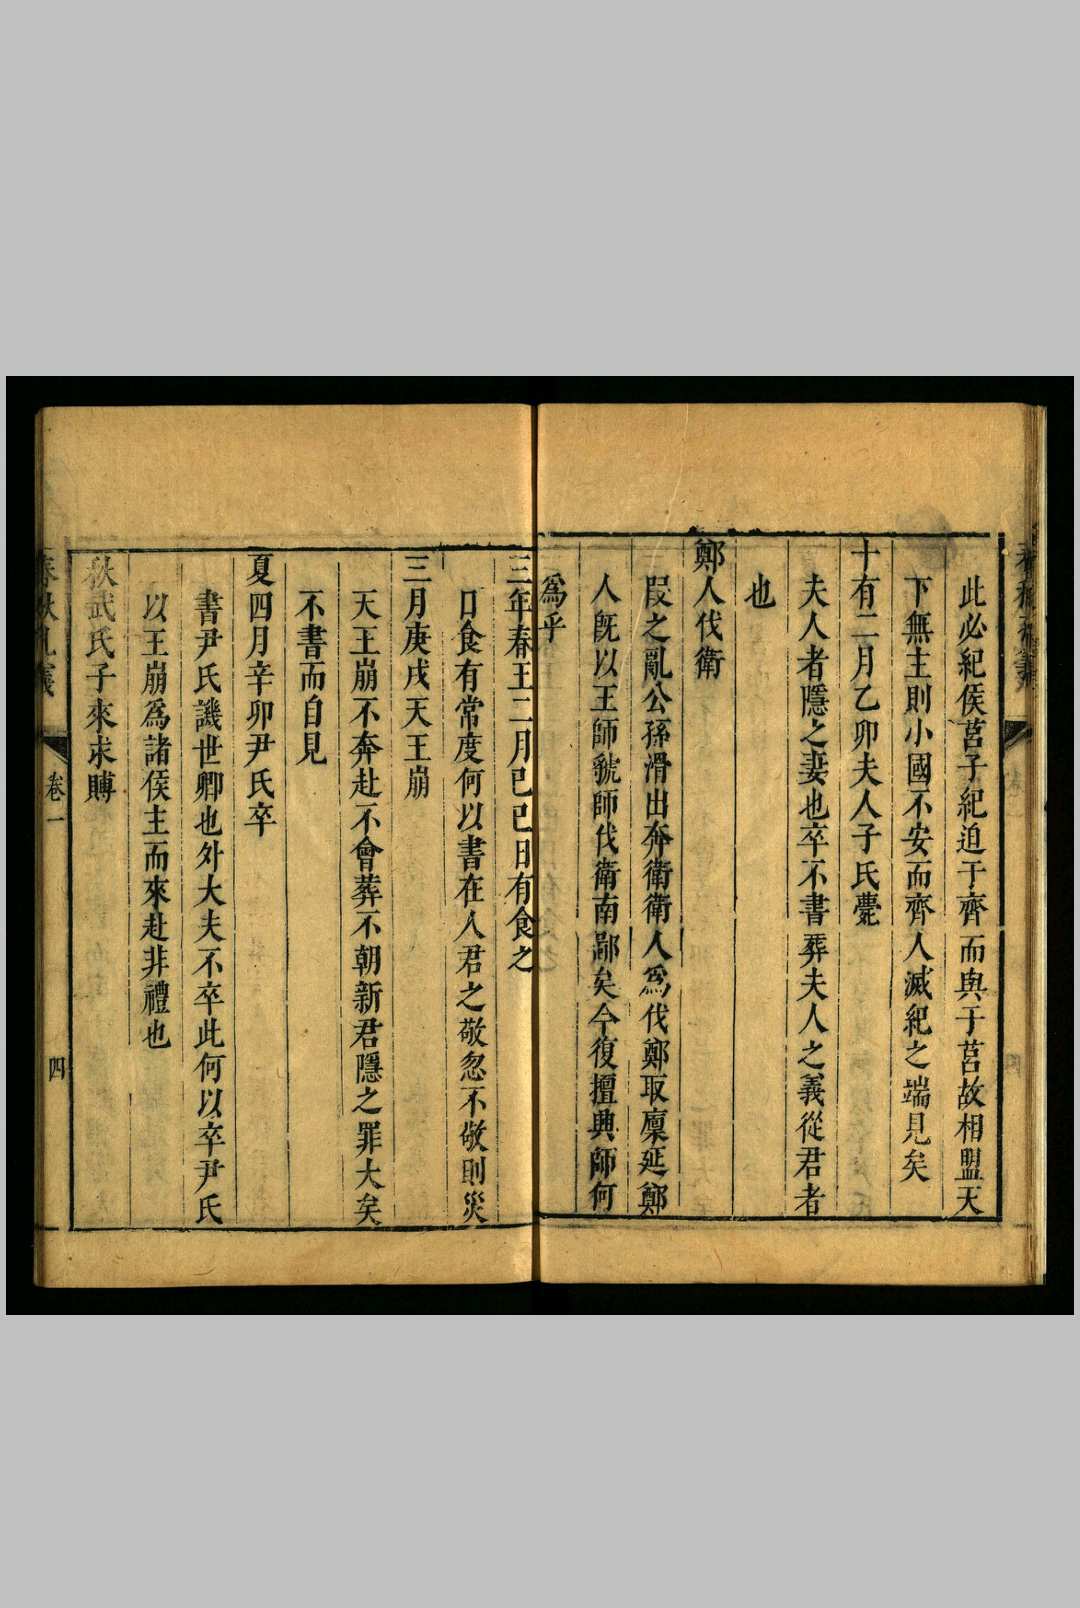 此必紀侯莒子紀迫于齊而與于莒故相盟天
下無主則小國不安而齊人滅紀之端見矣
十有二月乙卯夫人子氏薨
夫人者隱之妻也卒不書葬夫人之義從君者
也
鄭人伐衛
段之亂公孫滑出奔衛衛人為伐鄭取廩延鄭
人旣以王師虢師伐衛南鄙矣今復擅興師何
爲乎
三年春王二月己巳日有食之
日食有常度何以書在人君之敬忽不敬則災
三月庚戌天王崩
天王崩不奔赴不會葬不朝新君隱之罪大矣
不書而自見
夏四月辛卯尹氏卒
書尹氏譏世卿也外大夫不卒此何以卒尹氏
以王崩爲諸侯主而來赴非禮也
秋武氏子來求賻
卷一
四